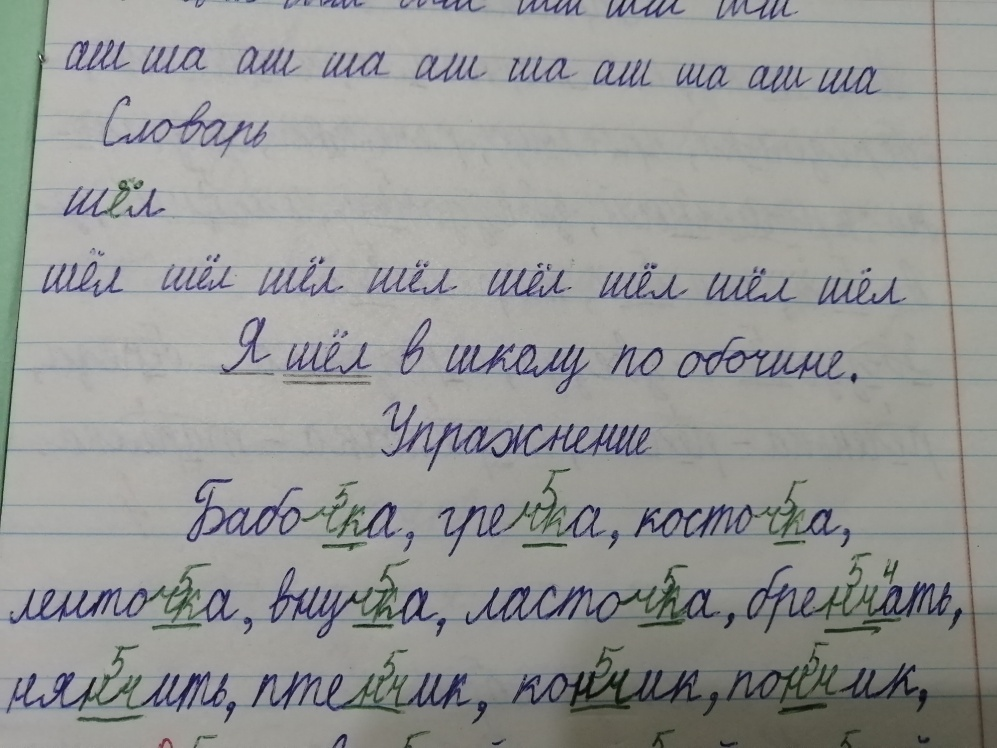 аш ша аш ша аш ша аш ша аш ша
Словарь
шёл
шёл шёл шёл шёл шёл шёл шёл шёл
Я шёл в школу по обочине.
Упражнение
Бабочка, гречка, косточка,
ленточка, внучка, ласточка, бренчать,
нянчить, птенчик, кончик, пончик,